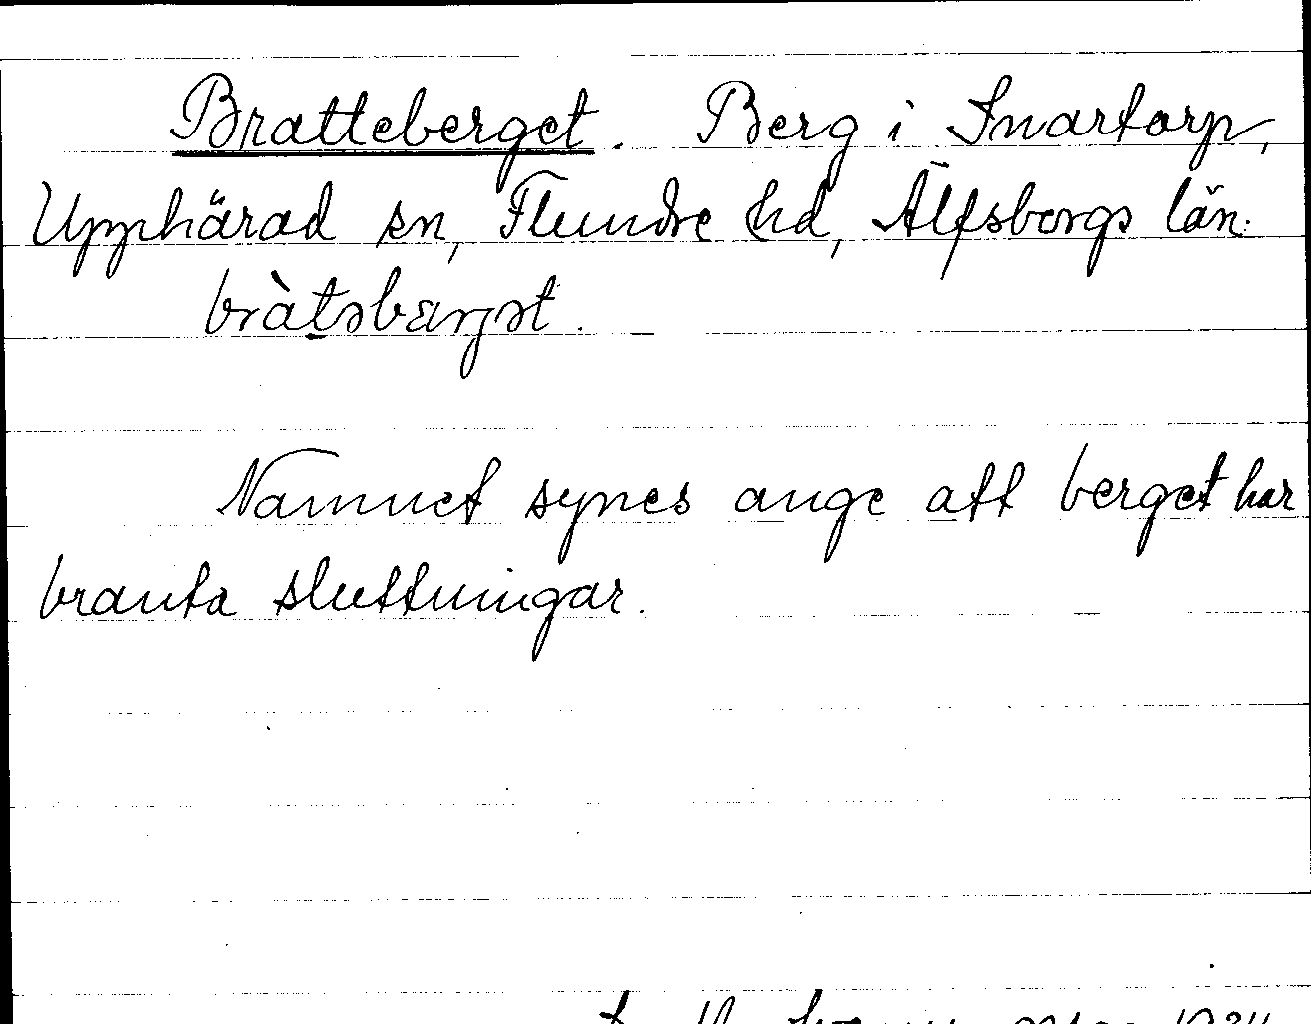 Bratteberget. Berg i Snartorp,
Upphärad sn, Flundre hd, Älfsborgs län.
bràtsbärgst.
Namnet synes ange att berget har
branta sluttningar.